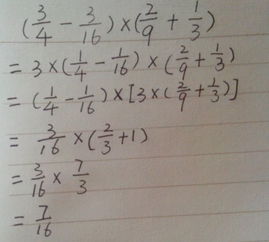 (3/4 - 3/16) × (2/9 + 1/3)
= 3 × (1/4 - 1/16) × (2/9 + 1/3)
= (1/4 - 1/16) × [3 × (2/9 + 1/3)]
= 3/16 × (2/3 + 1)
= 3/16 × 7/3
= 7/16